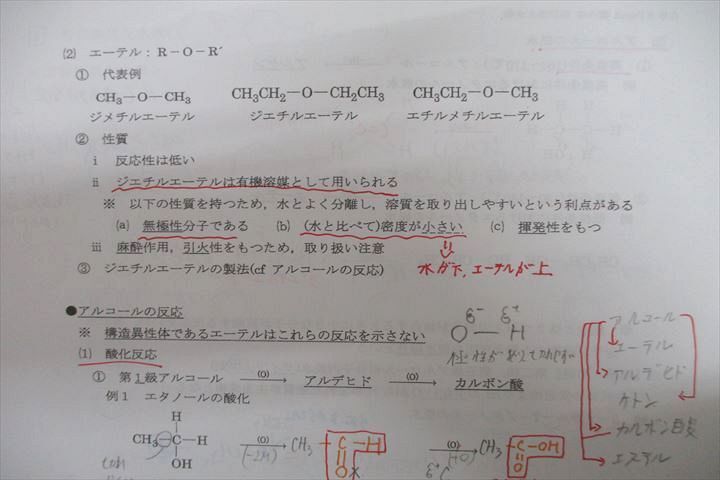 (2) エーテル：R－O－R´
① 代表例
CH₃－O－CH₃ CH₃CH₂－O－CH₂CH₃ CH₃CH₂－O－CH₃
ジメチルエーテル ジエチルエーテル エチルメチルエーテル
② 性質
ⅰ 反応性は低い
ⅱ ジエチルエーテルは有機溶媒として用いられる
※ 以下の性質を持つため，水とよく分離し，溶質を取り出しやすいという利点がある
(a) 無極性分子である (b) (水と比べて)密度が小さい (c) 揮発性をもつ
ⅲ 麻酔作用，引火性をもつため，取り扱い注意
水が下、エーテルが上
③ ジエチルエーテルの製法(cf アルコールの反応)
●アルコールの反応
※ 構造異性体であるエーテルはこれらの反応を示さない
δ⁻ δ⁺
O－H
(1) 酸化反応
① 第1級アルコール (O) → アルデヒド (O) → カルボン酸
例1 エタノールの酸化
H
CH₃－C－H (O) → CH₃－C－H (O) → CH₃－C－OH
OH (-2H) O O
アルコール
エーテル
アルデヒド
ケトン
カルボン酸
エステル